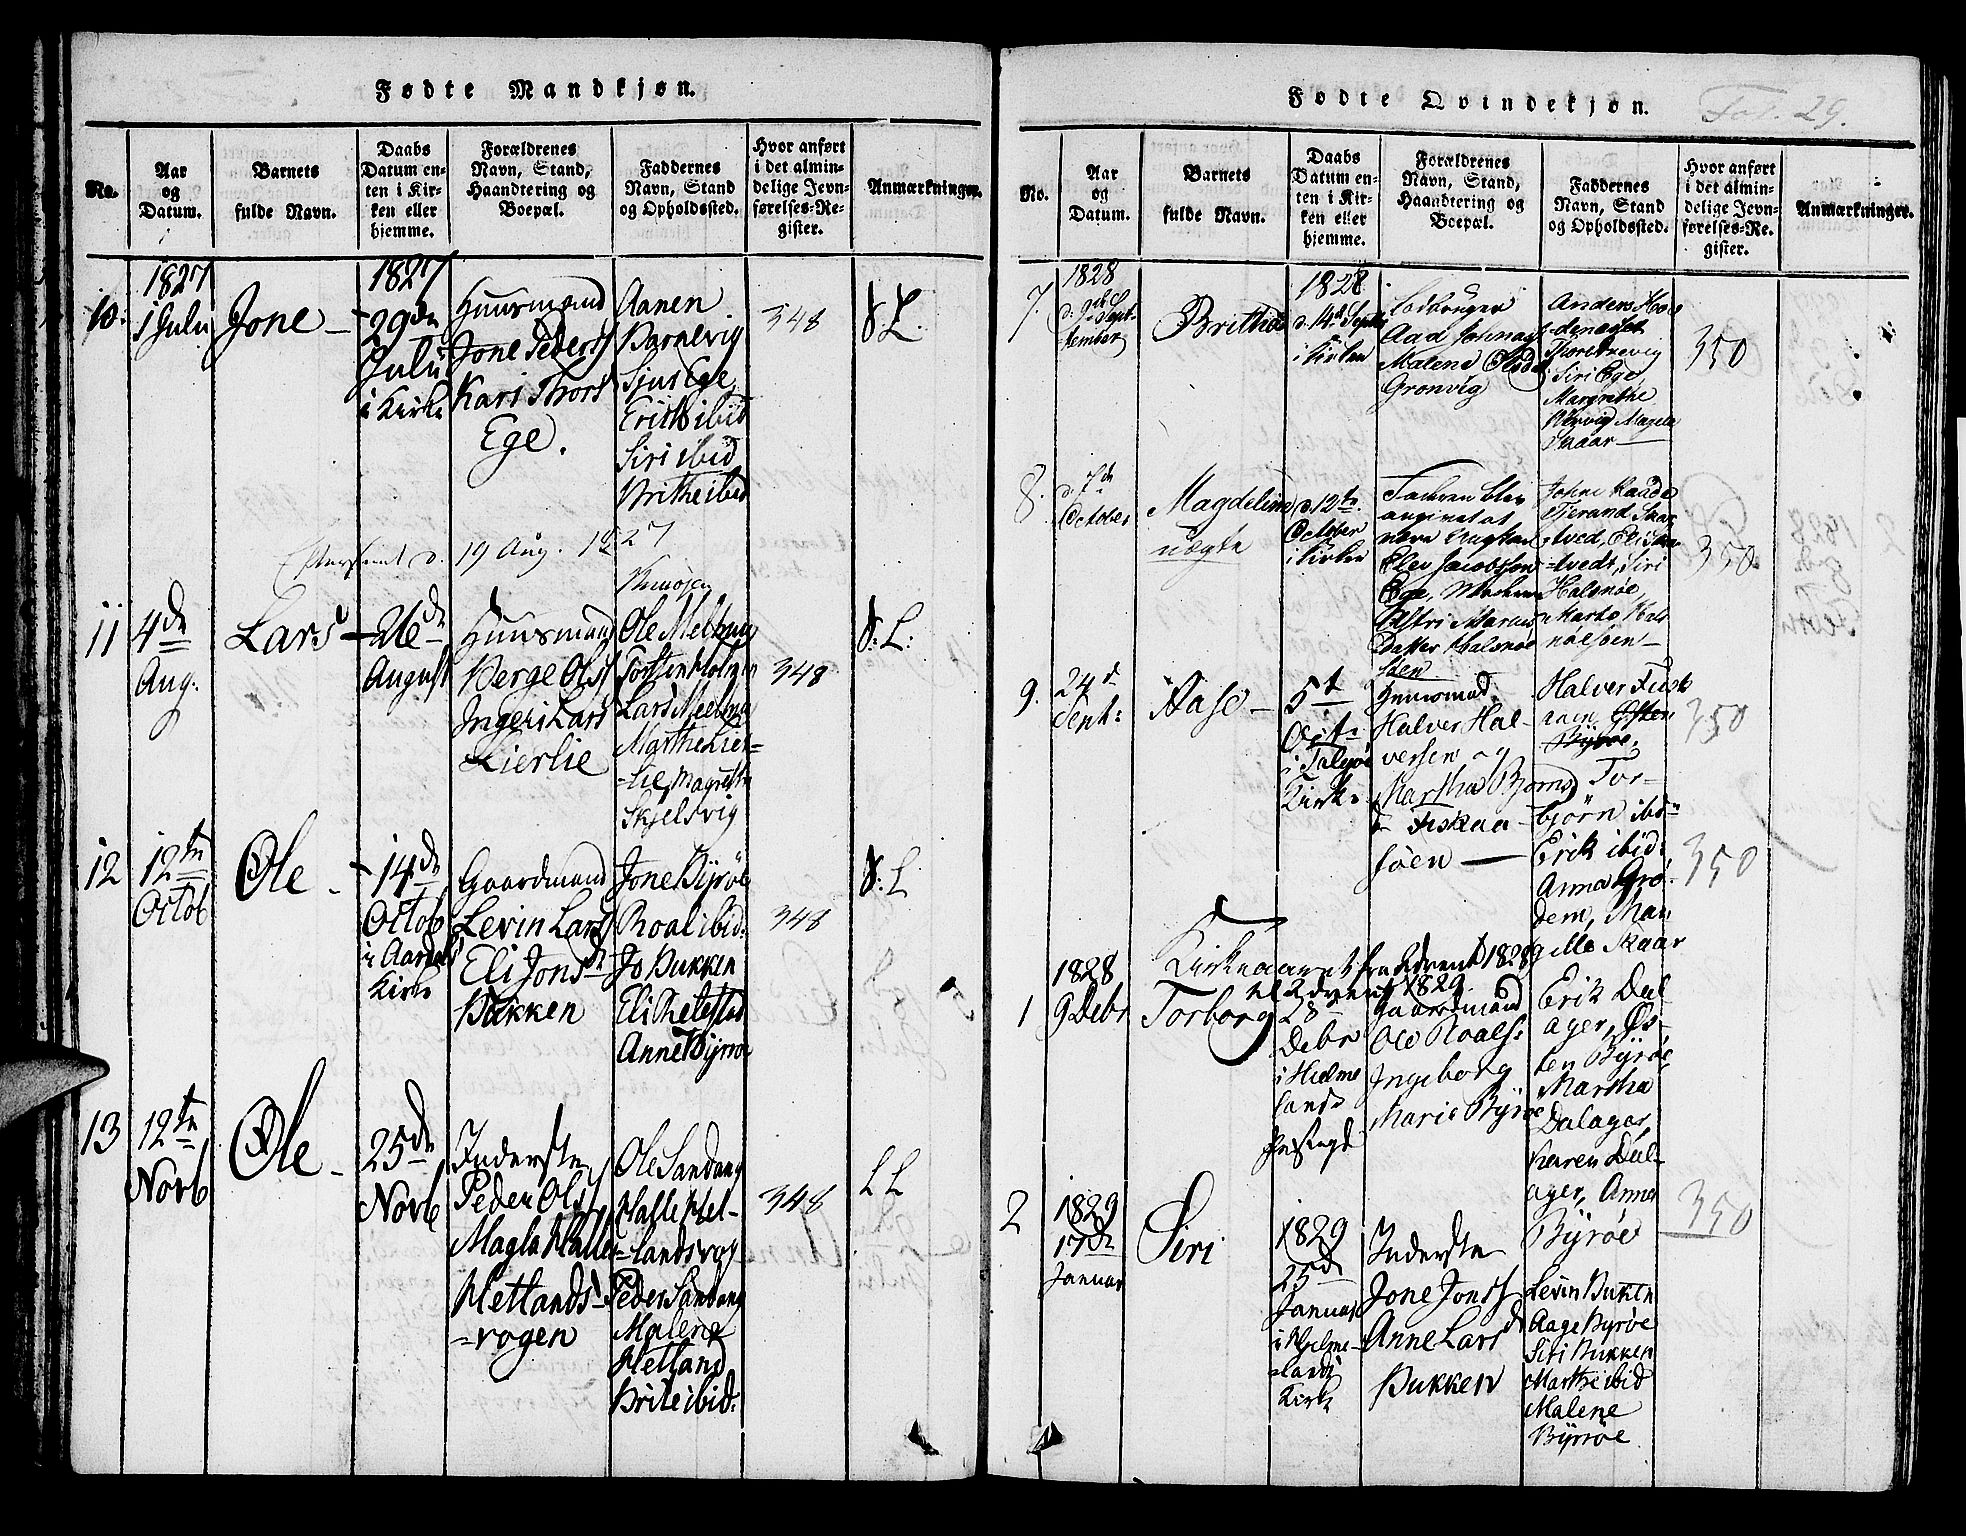 Fødte Mandkjøn.
No.
Aar
og
Datum.
Barnets
fulde Navn.
Daabs
Datum en-
ten i Kir-
ken eller
hjemme.
Forældrenes
Navn, Stand,
Haandtering og
Boepæl.
Faddernes
Navn, Stand
og Opholdssted.
Hvor anført
i det almin-
delige Jevn-
førelses-Re-
gister.
Anmærkninger.
10.
1827
1 Julii
Jone
1827
29de
Julii
i Kirke
Huusmand
Jone Peders
Kari Thors
Ege.
Aanen
Barnevig
Sjur Ege
Erik ibid
Siri ibid
Brithe ibid
348
L.
19 Aug. 1827
11
4de
Aug.
Lars
26de
August
Huusmand
Berge Ols
Ingeri Lars
Lierlie
Ole
Torsten
Lars
Marthe Lier-
-lie, Magrethe
Skjelsvig
348
L:
12
12te
Octob
Ole
14de
Octob
i Aardals
Kirke
Gaardmand
Levin Lars
Eli Jonsd
Bukken
Jone Byrøe
Roal ibid:
Jo Bukken
Eli
Anne Byrøe
348
L
13
12te
Novb
Ole
25de
Novb
Inderste
Peder Ols
Magla Halle
Hetlands-
-vogen
Ole Sandang
Halle Het-
-landsvog
Peder Sandang
Malene
Hetland
Brite ibid:
348
LL
Fødte Qvindekjøn.
Fol. 29.
No.
Aar
og
Datum.
Barnets
fulde Navn.
Daabs
Datum en-
ten i Kir-
ken eller
hjemme.
Forældrenes
Navn, Stand,
Haandtering og
Boepæl.
Faddernes
Navn, Stand
og Opholdssted.
Hvor anført
i det almin-
delige Jevn-
førelses-Re-
gister.
Anmærkninger.
7.
1828
Sept-
tember
Brithe
1828
d. 14d Septbr
i Kirken
Aad
Malene
Grønvig
Anders
Siri Ege
Margrethe
Magla
Skaar
350
8.
d. 7de
October
Magdelene
uægte
d. 12te
October
i Kirken
Faderen blev
angivet at
være Ungkarl
Elev Jacobsen
Ege, Moderen
Astri
Datter Halsnøe
John
Tjerand
Siri
Halsnøe
350.
9.
24d
Sept:
Aase
5t
Oct:
i Talgøe
Kirke
Huusmand
Halver Hal-
versen og
Martha Bjørnsd
Fiskaa-
søen
Halver Fisk
aaen, Østen
Byrøe,
Tor-
bjørn ibd
Erik ibid:
Anna Grø-
dem, Man
Skaar
350
350
Kirkeaaret fra Advent 1828
til Advent 1829
1
1828
9 Debr
Torborg
28
Debr
i Hielme
lands
Gaardmand
Ole Roals:
Ingeborg
Marie Byrøe
Erik Dal-
ager, Øs-
ten Byrøe
Martha
Dalager,
Karen Dal-
ager, Anne
Byrøe
350
2
1829
17de
Januar
Siri
1829
25de
Januar
i Hjelme-
-lands
Kirke
Inderste
Jone Jons
Anne Larsd
Bukken
Levin Bukken
Aage Byrøe
Siri Bukken
Marthe ibid
Malene
Byrøe